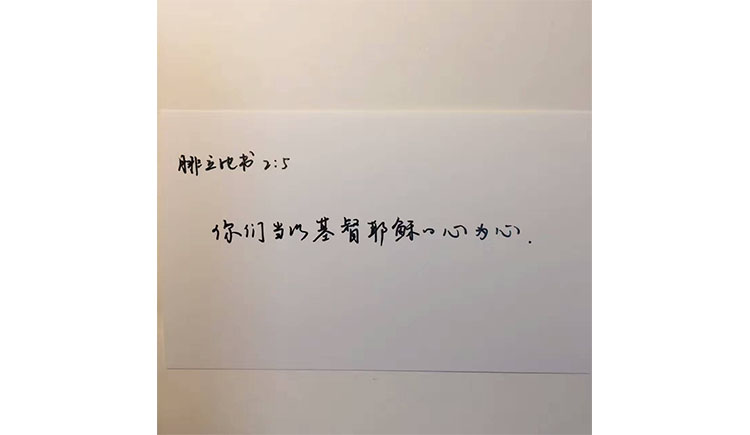 腓立比书 2:5
你们当以基督耶稣的心为心.